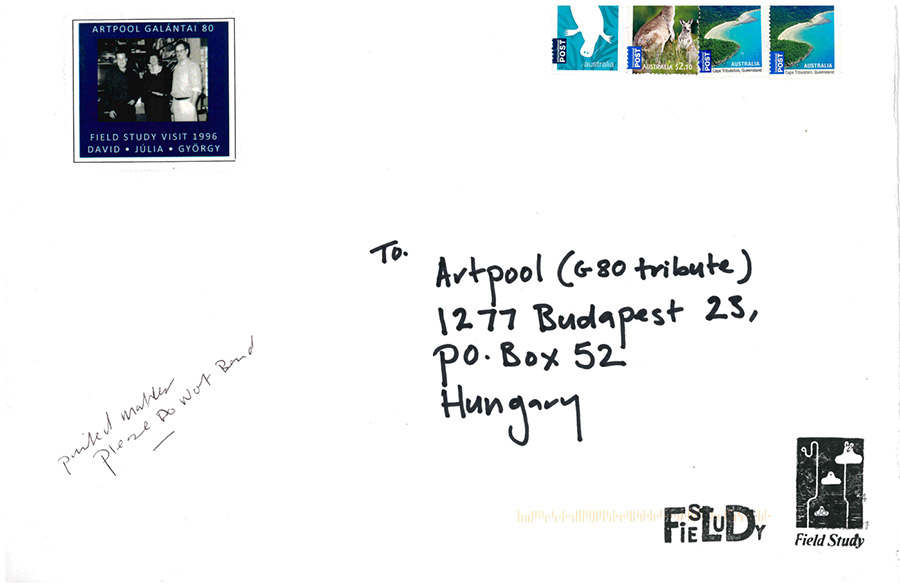 ARTPOOL GALÁNTAI 80
FIELD STUDY VISIT 1996
DAVID • JÚLIA • GYÖRGY
POST
australia
POST
AUSTRALIA $2.10
POST
AUSTRALIA
Cape Tribulation, Queensland
POST
AUSTRALIA
Cape Tribulation, Queensland
To.
Artpool (G80 tribute)
1277 Budapest 23,
PO. Box 52
Hungary
printed matter
Please Do Not Bend
FiELD STUDY
Field Study